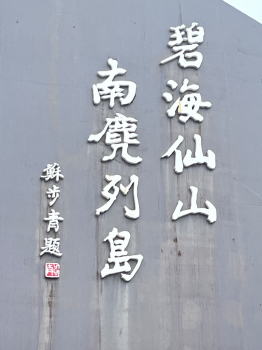 碧海仙山
南麂列島
蘇步青題